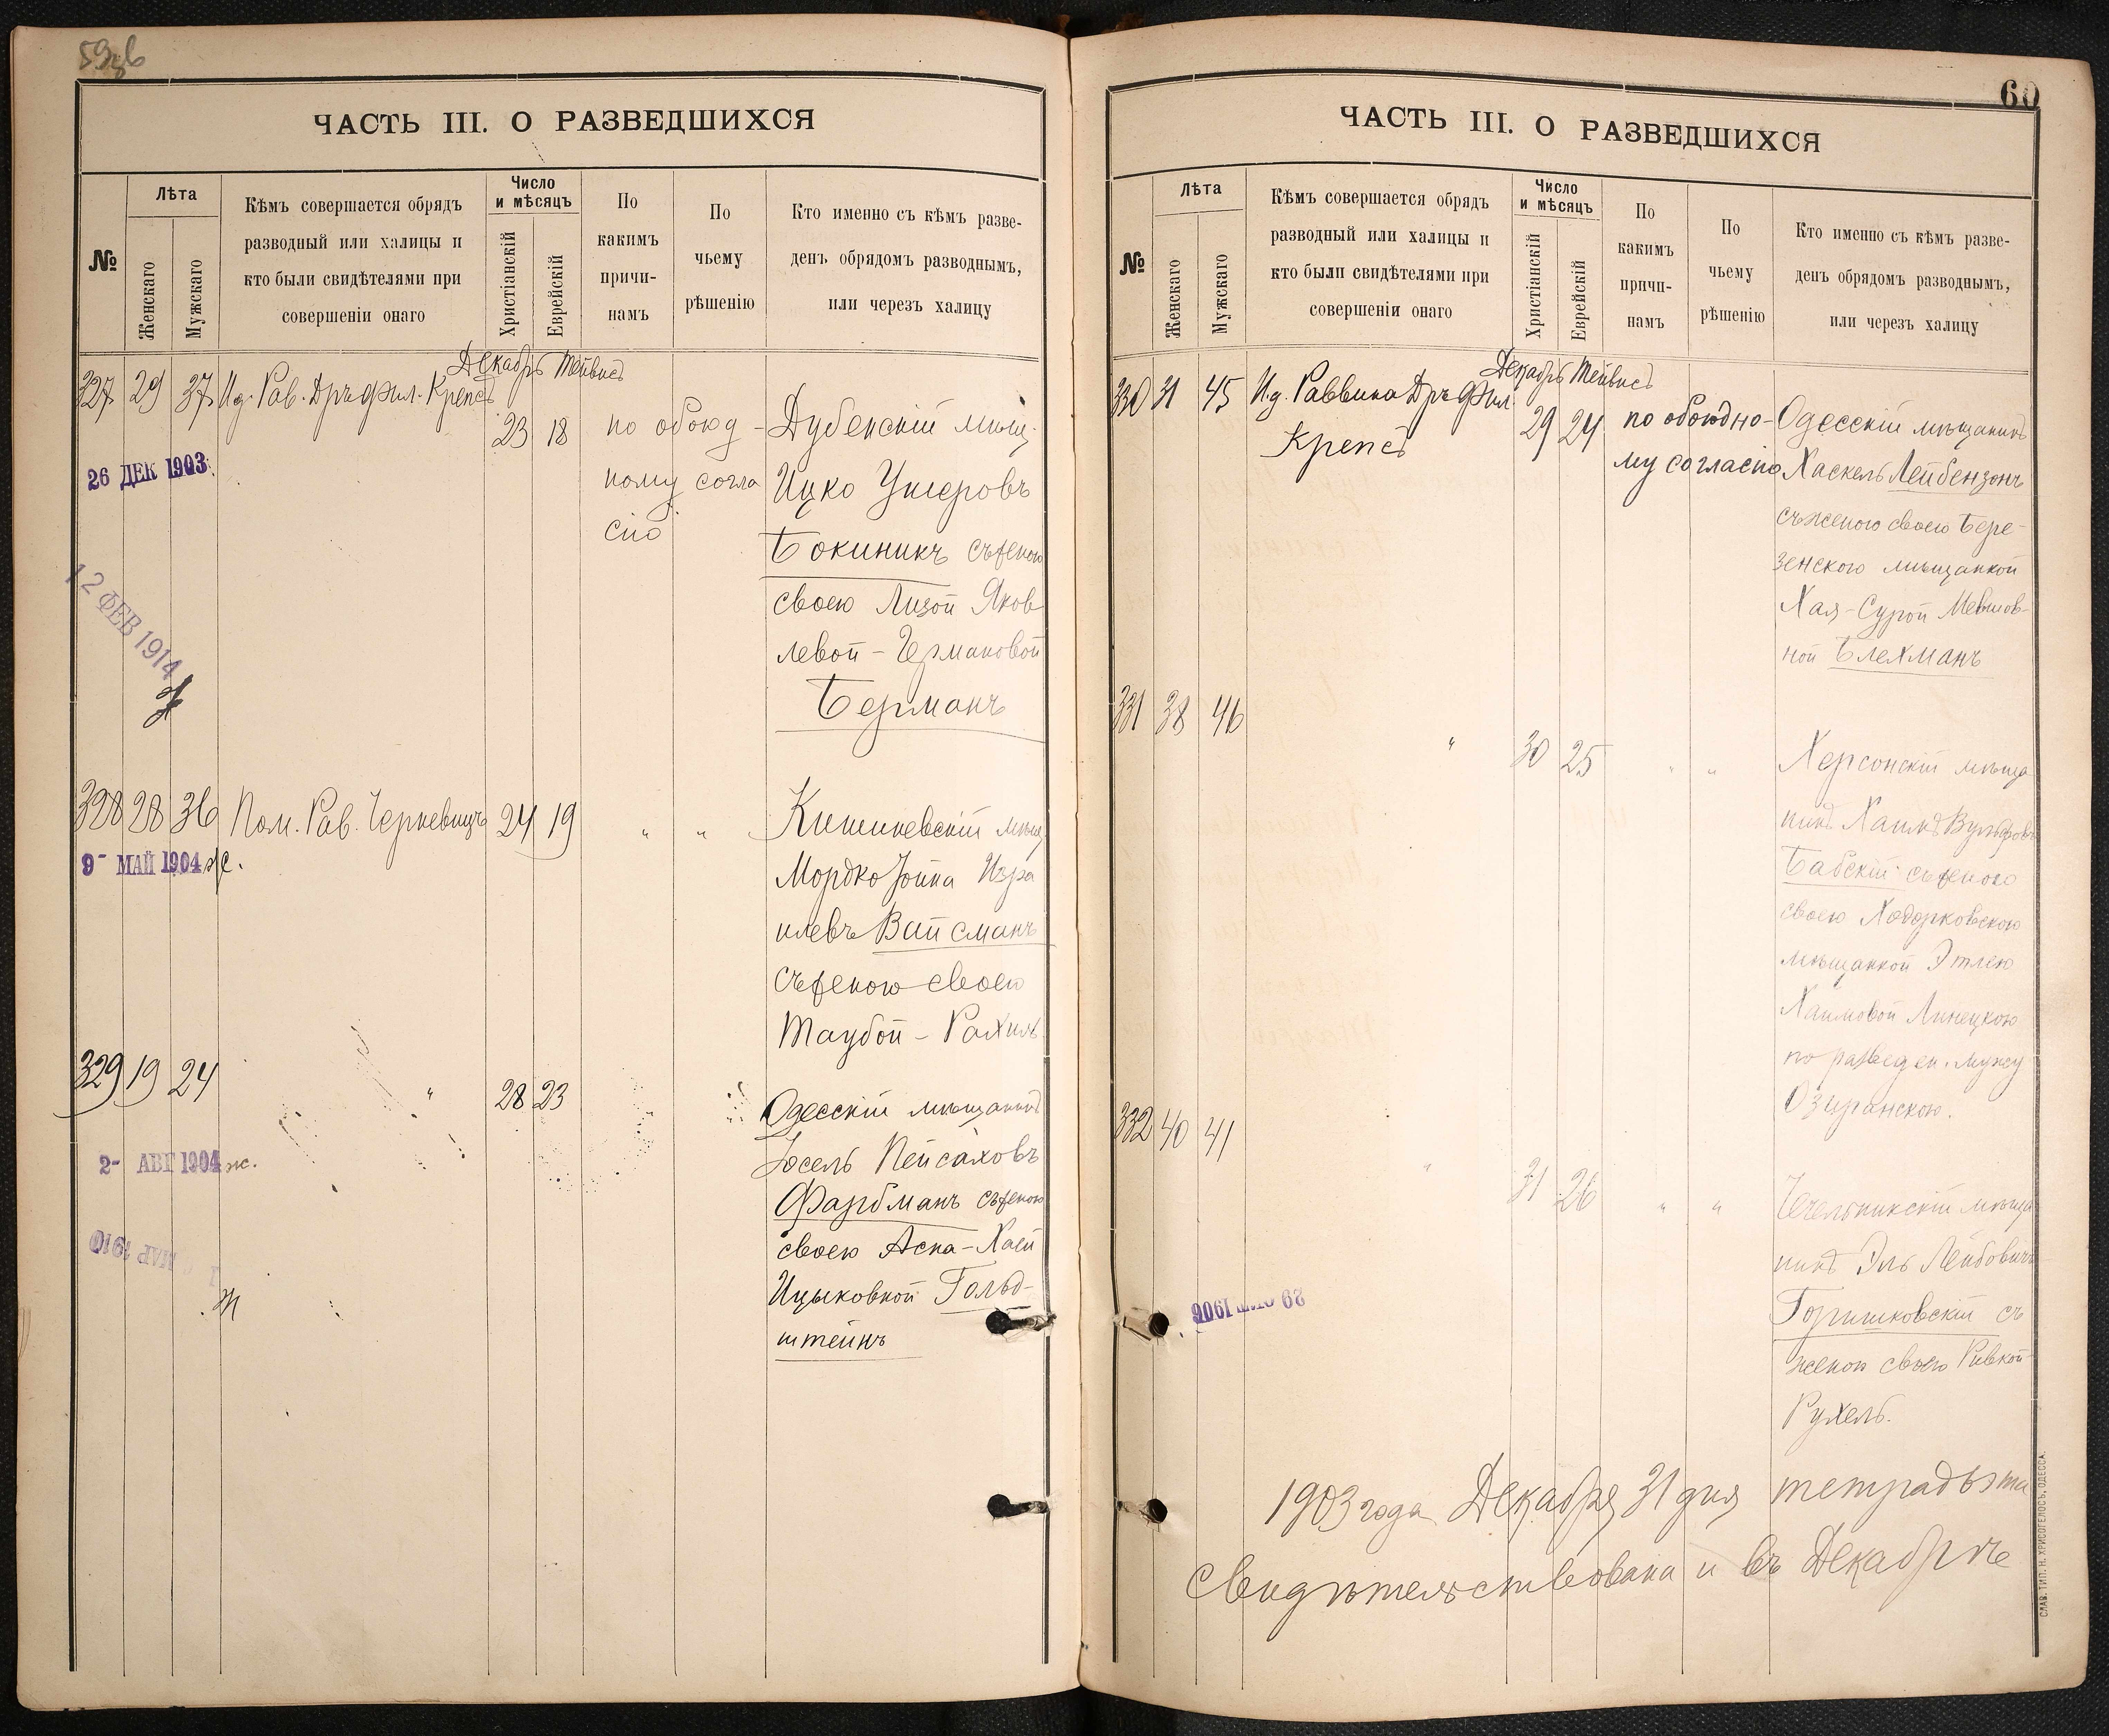 59об
ЧАСТЬ III. О РАЗВЕДШИХСЯ
№
Лѣта
Женскаго
Мужскаго
Кѣмъ совершается обрядъ
разводный или халицы и
кто были свидѣтелями при
совершеніи онаго
Число
и мѣсяцъ
Христіанскій
Еврейскій
По
какимъ
причи-
намъ
По
чьему
рѣшенію
Кто именно съ кѣмъ разве-
денъ обрядомъ разводнымъ,
или черезъ халицу
Декабрь Тейвисъ
327 29 37 И.д. Рав. Дръ Фил. Крепсъ
23 18 по обоюд-
ному согла
сію
Дубенскій мѣщ.
Ицко Ушеровъ
Бокиникъ съ женою
своею Лизой Яков
левой-Германовой
Берманъ
26 ДЕК 1903
12 ФЕВ 1914
328 28 36 Пом. Рав. Черкевичъ 24 19 " "
Кишиневскій мѣщ.
Мордко Іойна Изра
илевъ Вайсманъ
съ женою своею
Таубой-Рахиль
9- МАЙ 1904 ж.
329 19 24 " 28 23 "
Одесскій мѣщанинъ
Іосель Пейсаховъ
Фарбманъ съ женою
своею Асна-Хаей
Ицыковной Гольд-
штейнъ
2- АВГ 1904 ж.
МАР 1910
ж
60
ЧАСТЬ III. О РАЗВЕДШИХСЯ
№
Лѣта
Женскаго
Мужскаго
Кѣмъ совершается обрядъ
разводный или халицы и
кто были свидѣтелями при
совершеніи онаго
Число
и мѣсяцъ
Христіанскій
Еврейскій
По
какимъ
причи-
намъ
По
чьему
рѣшенію
Кто именно съ кѣмъ разве-
денъ обрядомъ разводнымъ,
или черезъ халицу
Декабрь Тейвисъ
330 31 45 И.д. Раввина Дръ Фил.
Крепсъ
29 24 по обоюдно-
му согласію
Одесскій мѣщанинъ
Хаскель Лейбензонъ
съ женою своею Бере-
зенского мѣщанкой
Хая-Сурой Мевшов-
ной Блехманъ
331 38 46 " 30 25 " "
Херсонскій мѣща
нинъ Хаимъ Вульфовъ
Бабскій съ женою
своею Ходорковскою
мѣщанкой Этлею
Хаимовой Линецкою
по развед ен. мужу
Озиранскою.
332 40 41 " 31 26 " "
Чечельникскій мѣща
нинъ Эль Лейбовичъ
Горишковскій съ
женою своею Ривкой-
Рухель.
29 1906
1903 года Декабря 31 дня тетрадь эта
свидѣтельствована и въ Декабрѣ
СЛАВ. ТИП. Н. ХРИСОГЕЛОСЪ, ОДЕССА.